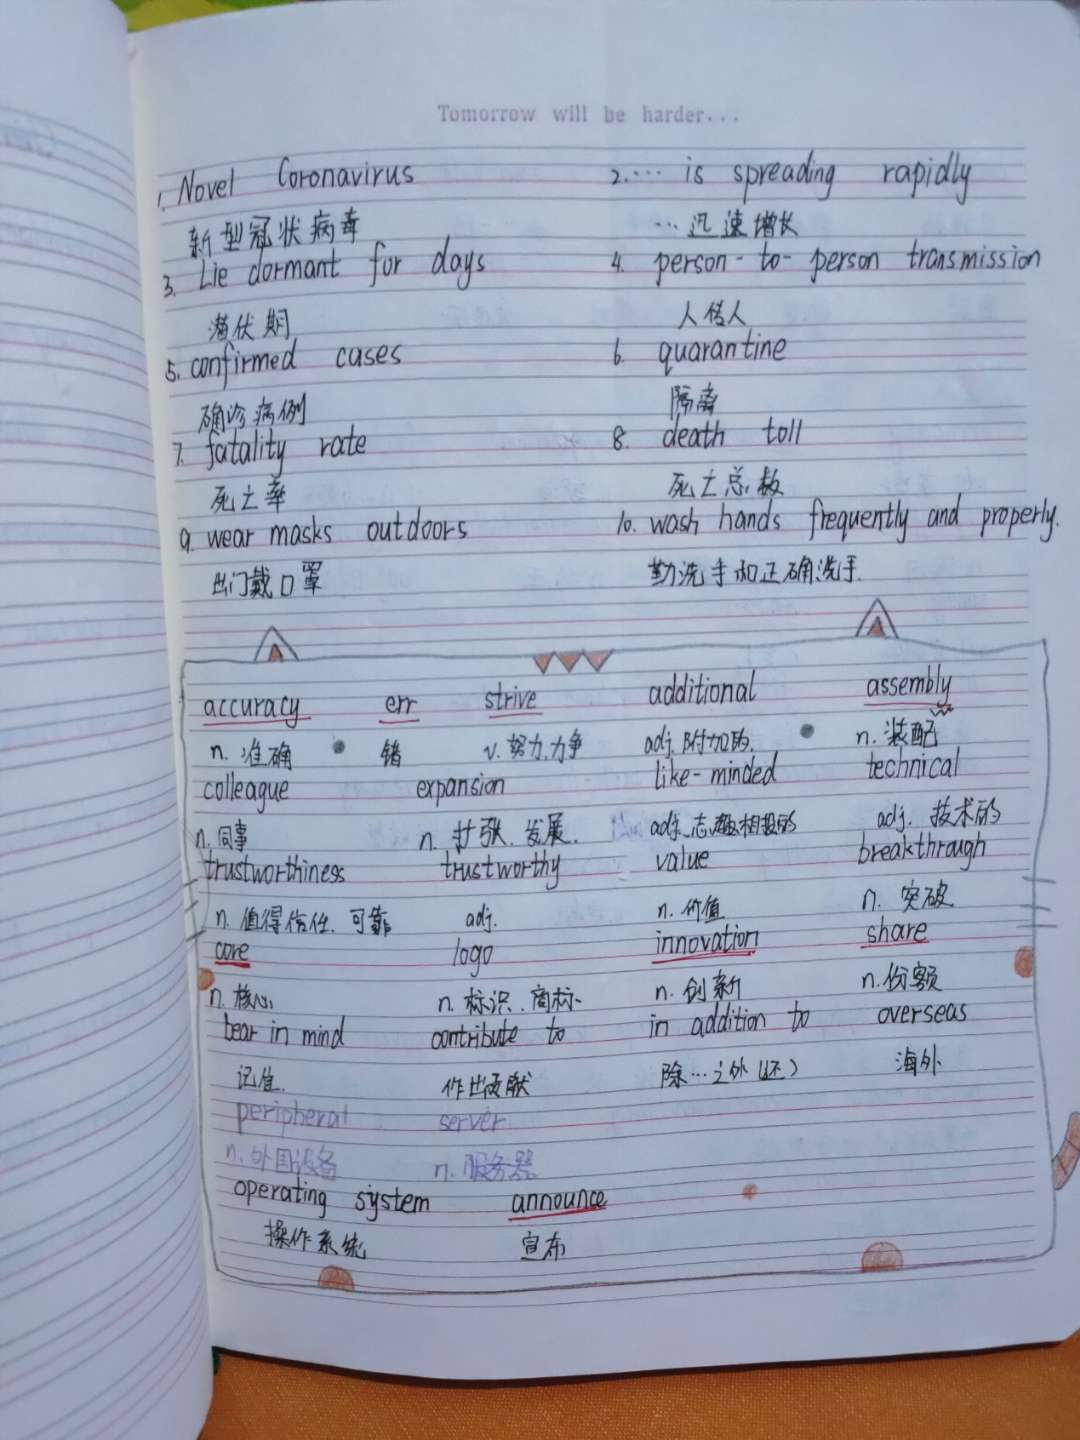 Tomorrow will be harder...
1. Novel Coronavirus 2. ... is spreading rapidly
新型冠状病毒 ...迅速增长
3. Lie dormant for days 4. person-to-person transmission
潜伏期 人传人
5. confirmed cases 6. quarantine
确诊病例 隔离
7. fatality rate 8. death toll
死亡率 死亡总数
9. wear masks outdoors 10. wash hands frequently and properly.
出门戴口罩 勤洗手和正确洗手.
accuracy err strive additional assembly
n. 准确 错 v. 努力.力争 adj. 附加的. n. 装配
colleague expansion like-minded technical
n. 同事 n. 扩张. 发展. adj. 志趣相投的 adj. 技术的
trustworthiness trustworthy value breakthrough
n. 值得信任. 可靠 adj. n. 价值 n. 突破
core logo innovation share
n. 核心 n. 标识. 商标. n. 创新 n. 份额
bear in mind contribute to in addition to overseas
记住. 作出贡献 除...之外(还) 海外
peripheral server
n. 外围设备 n. 服务器
operating system announce
操作系统 宣布